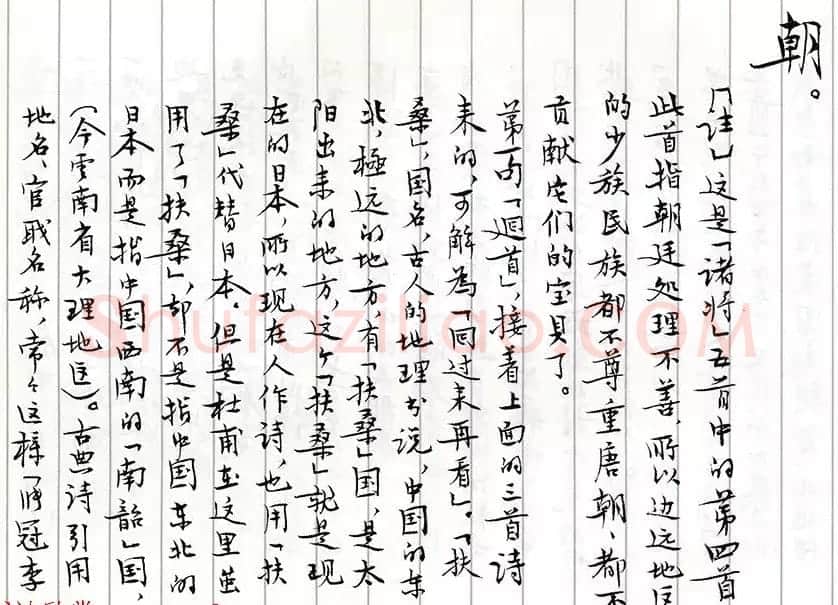 朝。
「注」这是「诸将」五首中的第四首
此首指朝廷处理不善，所以边远地区
的少族民族都不尊重唐朝、都不
贡献它们的宝贝了。
第一句「迴首」，接着上面的三首诗
来的，可解为「回过来再看」。「扶
桑」，国名，古人的地理书说，中国的东
北，極远的地方，有「扶桑」国，是太
阳出来的地方，这个「扶桑」就是现
在的日本，所以现在人作詩，也用「扶
桑」代替日本。但是杜甫在这里虽
用了「扶桑」，却不是指中国东北的
日本而是指中国西南的「南韶」国，
（今雲南省大理地区）。古典诗引用
地名、官职名称，常々这樣「張冠李
Shufaziliao.COM